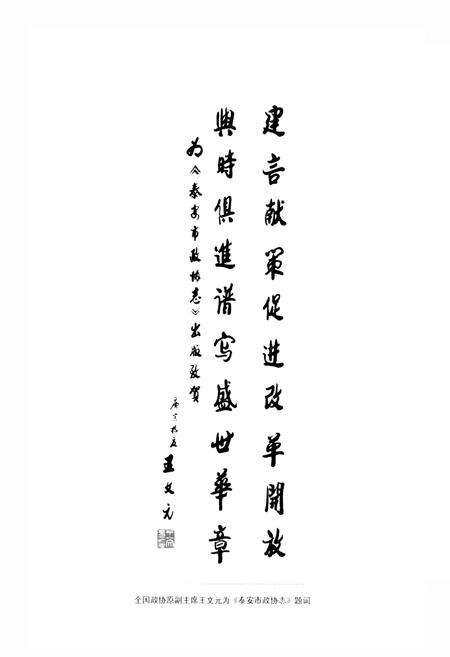 建言献策促进改革開放
與時俱進谱写盛世華章
为《泰安市政协志》出版致賀
庚寅孟夏
王文元
全国政协原副主席王文元为《泰安市政协志》题词